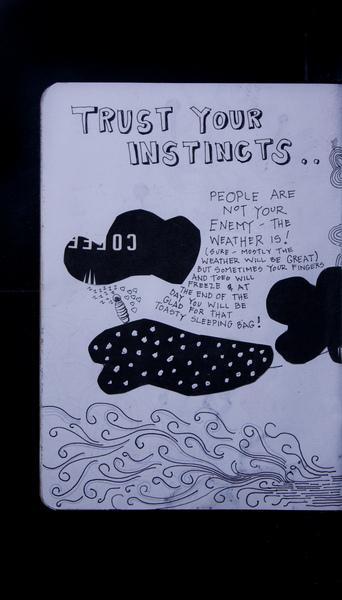 TRUST YOUR
INSTINCTS..
PEOPLE ARE
NOT YOUR
ENEMY - THE
WEATHER IS!
(SURE - MOSTLY THE
WEATHER WILL BE GREAT)
BUT SOMETIMES YOUR FINGERS
AND TOES WILL
FREEZE & AT
THE END OF THE
DAY YOU WILL BE
GLAD FOR THAT
TOASTY SLEEPING BAG!
COFFEE